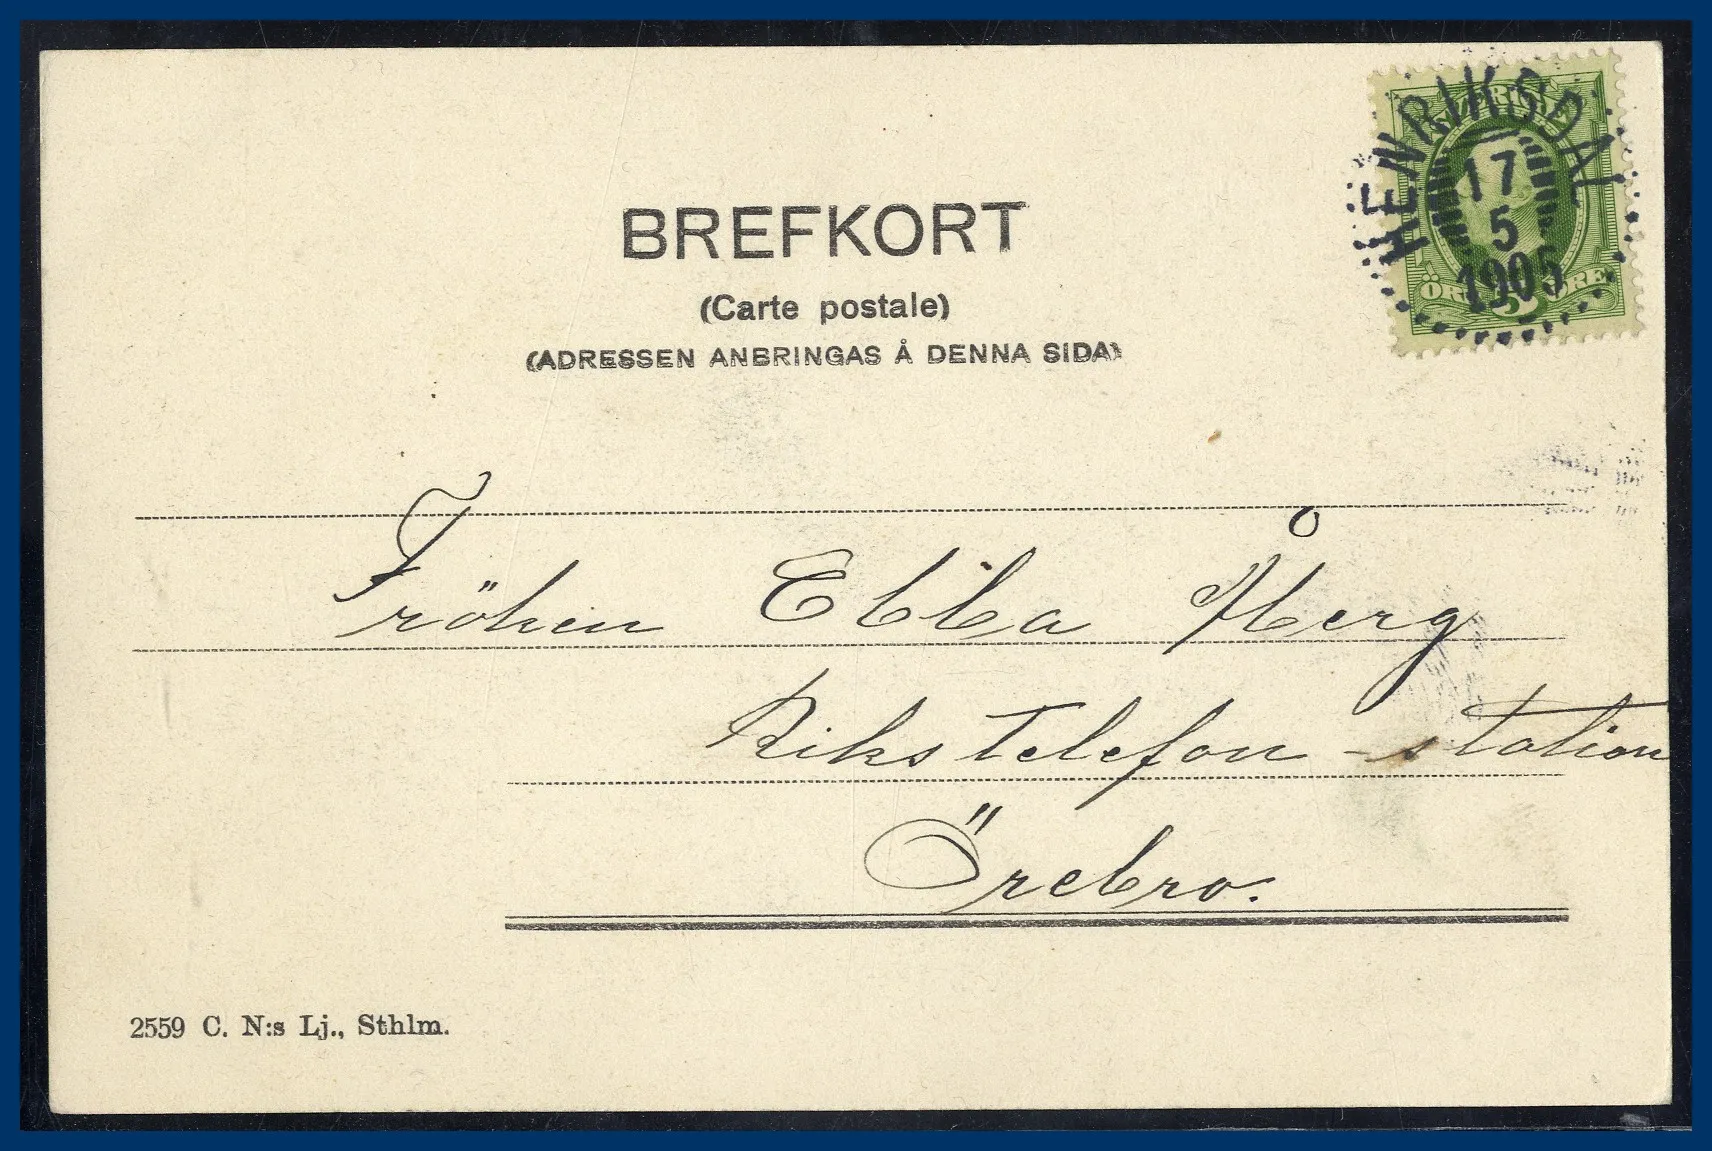 BREFKORT
(Carte postale)
(ADRESSEN ANBRINGAS Å DENNA SIDA)
HENRIKSDAL
17
5
1905
ÖRE 5 ÖRE
Fröken Ebba Åberg
Rikstelefon-station
Örebro.
2559 C. N:s Lj., Sthlm.